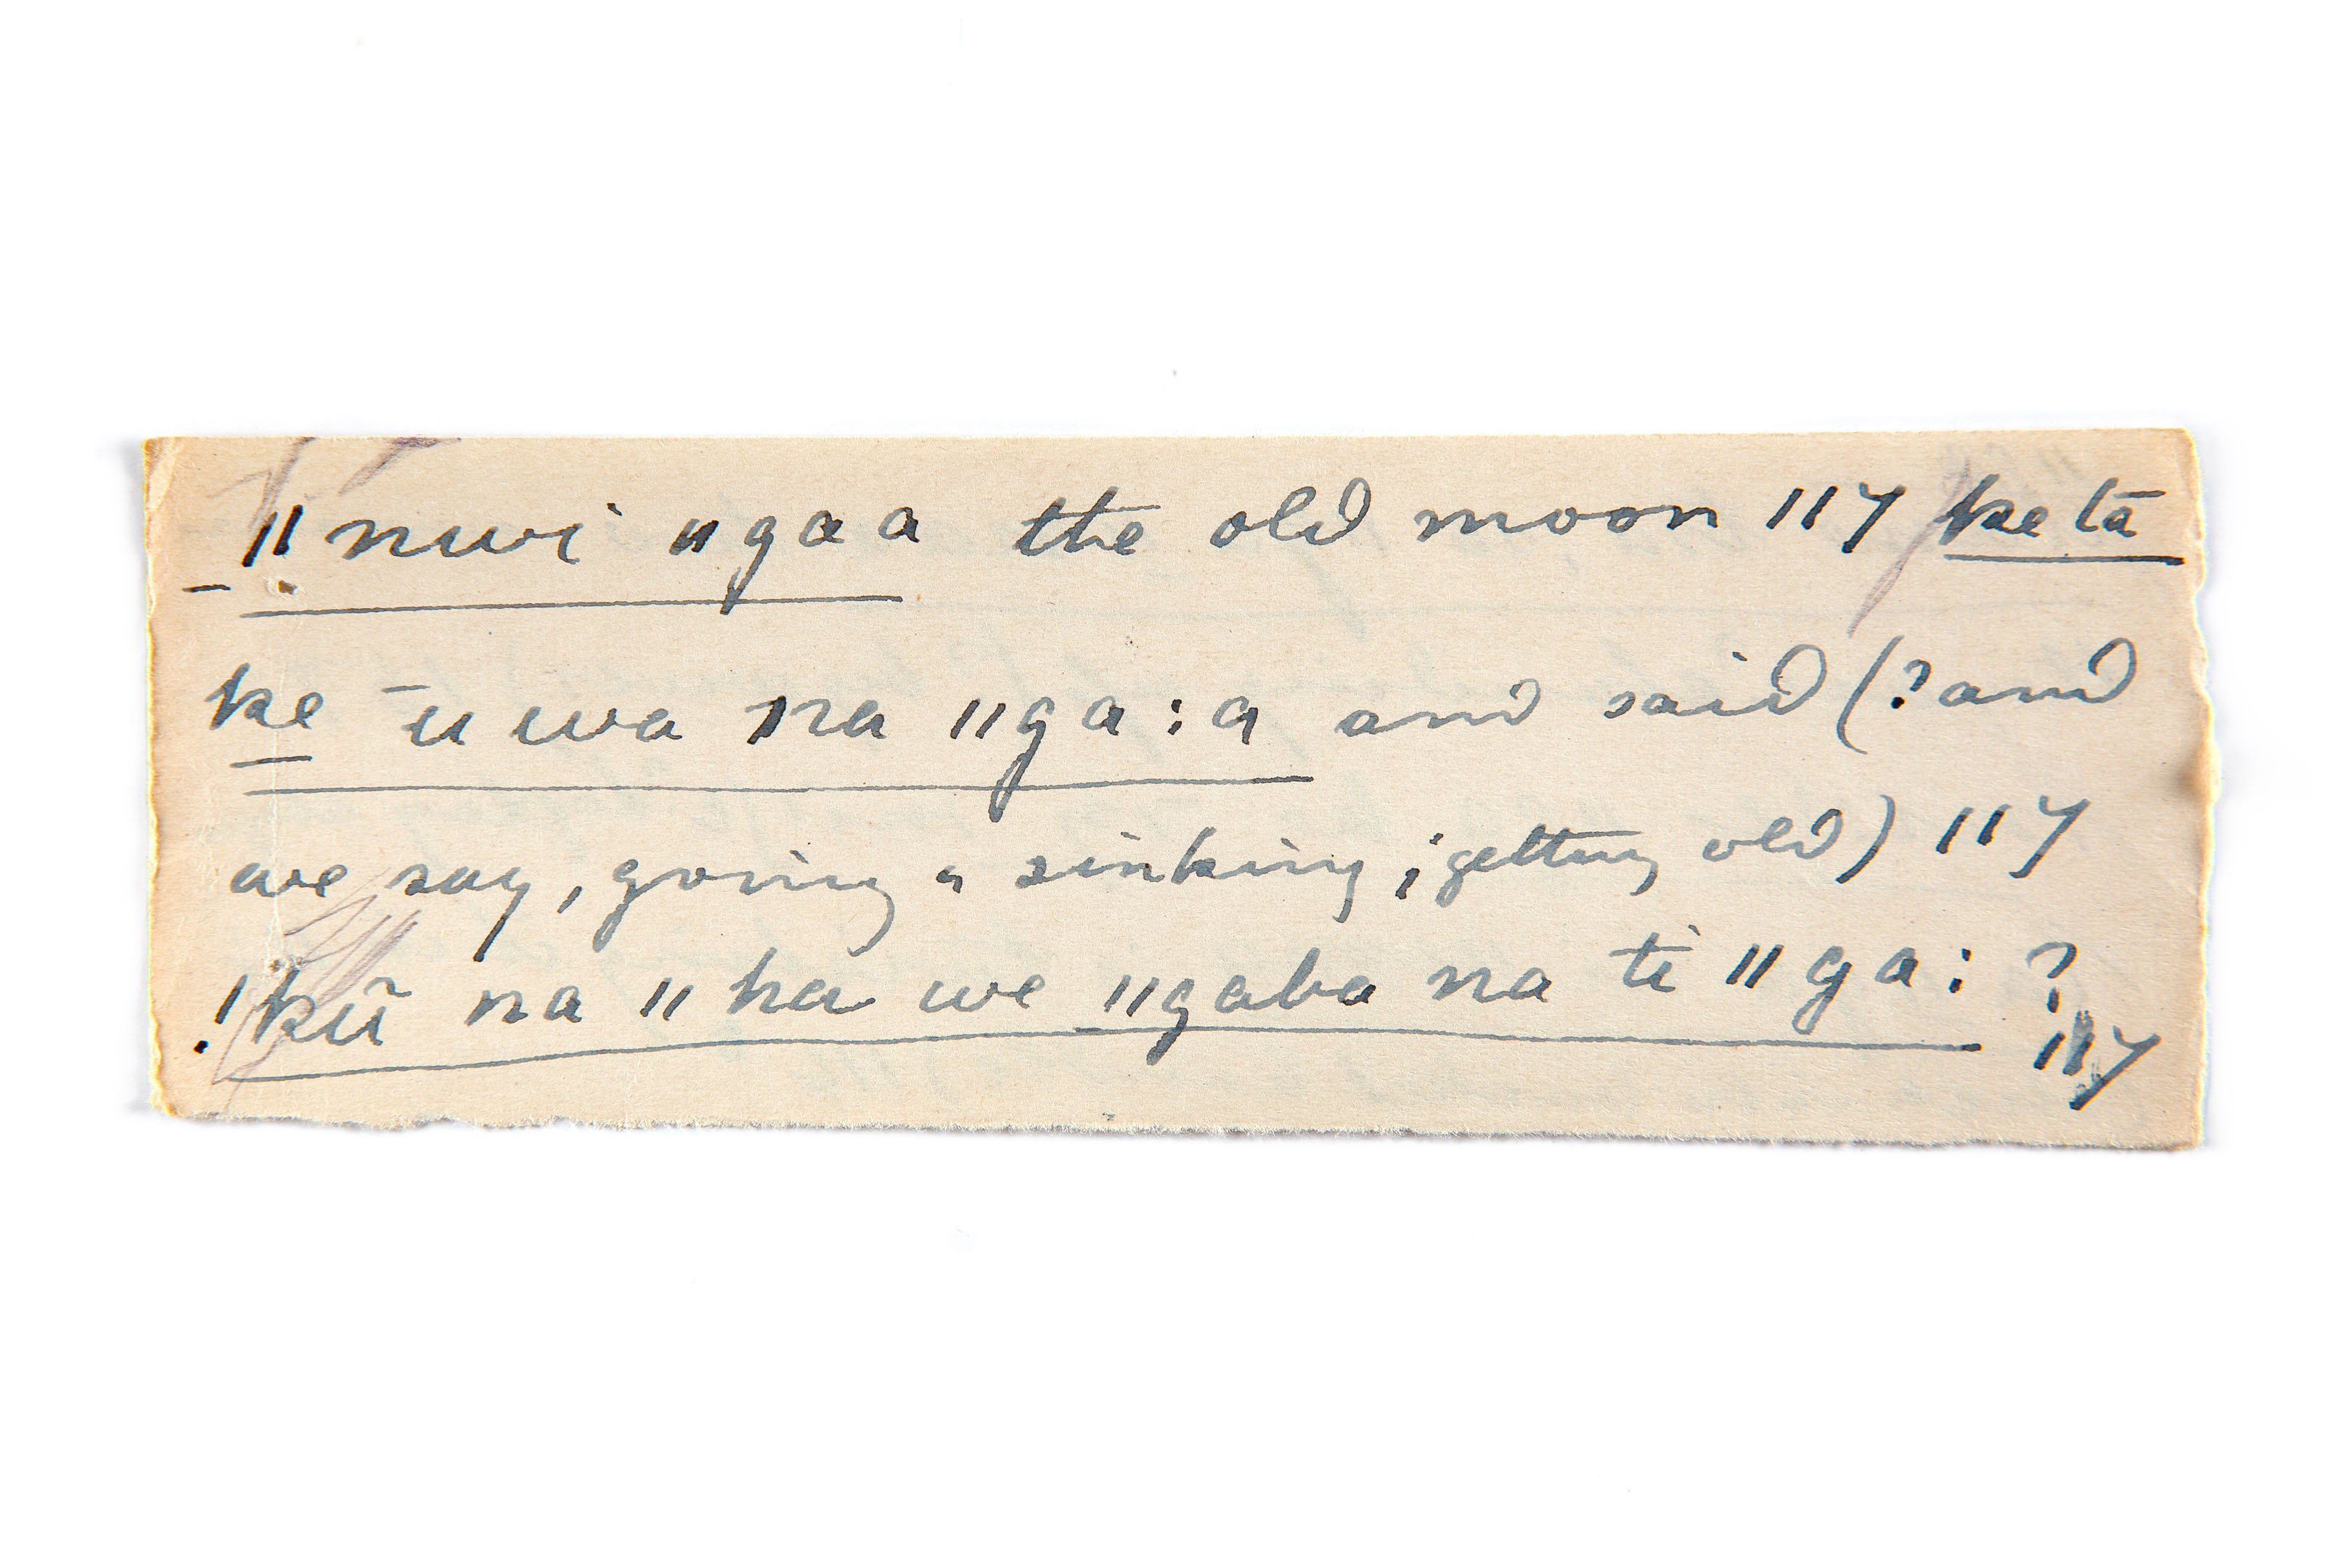 ǁnwi ǁgaa the old moon ǁ7 ke tā
ke ūwa na ǁga:a and said (? and
we say, going a sinking; getting old) ǁ7
!kũ na ǁha we ǁgaba na ti ǁga: ?
ǁ7